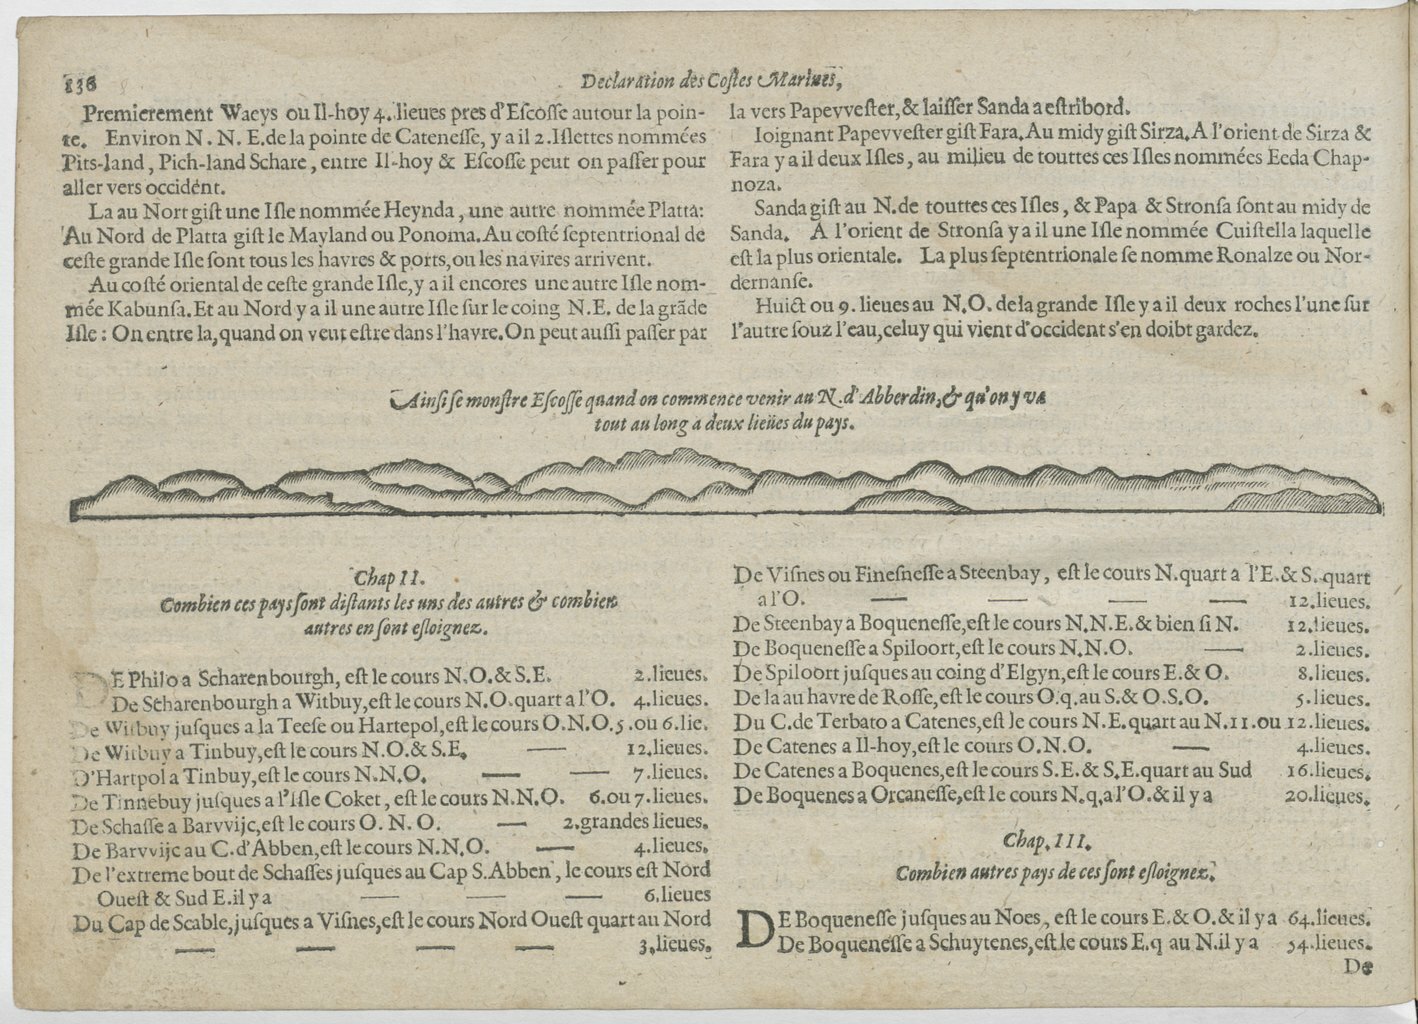 136
Declaration des Costes Marines,
Premierement Waeys ou Il-hoy 4. lieues pres d'Escosse autour la poin-
te. Environ N. N. E. de la pointe de Catenesse, y a il 2. Islettes nommées
Pits-land, Pich-land Schare, entre Il-hoy & Escosse peut on passer pour
aller vers occident.
La au Nort gist une Isle nommée Heynda, une autre nommée Platta:
Au Nord de Platta gist le Mayland ou Ponoma. Au costé septentrional de
ceste grande Isle sont tous les havres & ports, ou les navires arrivent.
Au costé oriental de ceste grande Isle, y a il encores une autre Isle nom-
mée Kabunsa. Et au Nord y a il une autre Isle sur le coing N.E. de la grãde
Isle: On entre la, quand on veut estre dans l'havre. On peut aussi passer par
la vers Papevvester, & laisser Sanda a estribord.
Ioignant Papevvester gist Fara. Au midy gist Sirza. A l'orient de Sirza &
Fara y a il deux Isles, au milieu de touttes ces Isles nommées Eeda Chap-
noza.
Sanda gist au N. de touttes ces Isles, & Papa & Stronsa sont au midy de
Sanda. A l'orient de Stronsa y a il une Isle nommée Cuistella laquelle
est la plus orientale. La plus septentrionale se nomme Ronalze ou Nor-
dernanse.
Huict ou 9. lieues au N.O. de la grande Isle y a il deux roches l'une sur
l'autre souz l'eau, celuy qui vient d'occident s'en doibt gardez.
Ainsi se monstre Escosse quand on commence venir au N. d'Abberdin, & qu'on y va
tout au long a deux lieües du pays.
Chap II.
Combien ces pays sont distants les uns des autres & combien
autres en sont esloignez.
DE Philo a Scharenbourgh, est le cours N.O. & S.E. 2. lieues.
De Scharenbourgh a Witbuy, est le cours N.O. quart a l'O. 4. lieues.
De Witbuy jusques a la Teese ou Hartepol, est le cours O.N.O. 5. ou 6. lie.
De Witbuy a Tinbuy, est le cours N.O. & S.E. — 12. lieues.
D'Hartpol a Tinbuy, est le cours N.N.O. — — 7. lieues.
De Tinnebuy jusques a l'Isle Coket, est le cours N.N.O. 6. ou 7. lieues.
De Schasse a Barvvijc, est le cours O. N. O. — 2. grandes lieues.
De Barvvijc au C. d'Abben, est le cours N.N.O. — 4. lieues.
De l'extreme bout de Schasses jusques au Cap S. Abben, le cours est Nord
Ouest & Sud E. il y a — — — 6. lieues
Du Cap de Scable, jusques a Visnes, est le cours Nord Ouest quart au Nord
— — — — 3. lieues.
De Visnes ou Finesnesse a Steenbay, est le cours N. quart a l'E. & S. quart
a l'O. — — — — 12. lieues.
De Steenbay a Boquenesse, est le cours N.N.E. & bien si N. 12. lieues.
De Boquenesse a Spiloort, est le cours N.N.O. — 2. lieues.
De Spiloort jusques au coing d'Elgyn, est le cours E. & O. 8. lieues.
De la au havre de Rosse, est le cours O.q. au S. & O.S.O. 5. lieues.
Du C. de Terbato a Catenes, est le cours N.E. quart au N. 11. ou 12. lieues.
De Catenes a Il-hoy, est le cours O.N.O. — 4. lieues.
De Catenes a Boquenes, est le cours S.E. & S.E. quart au Sud 16. lieues.
De Boquenes a Orcanesse, est le cours N.q. a l'O. & il y a 20. lieues.
Chap. III.
Combien autres pays de ces sont esloignez.
DE Boquenesse jusques au Noes, est le cours E. & O. & il y a 64. lieues.
De Boquenesse a Schuytenes, est le cours E.q au N. il y a 54. lieues.
De